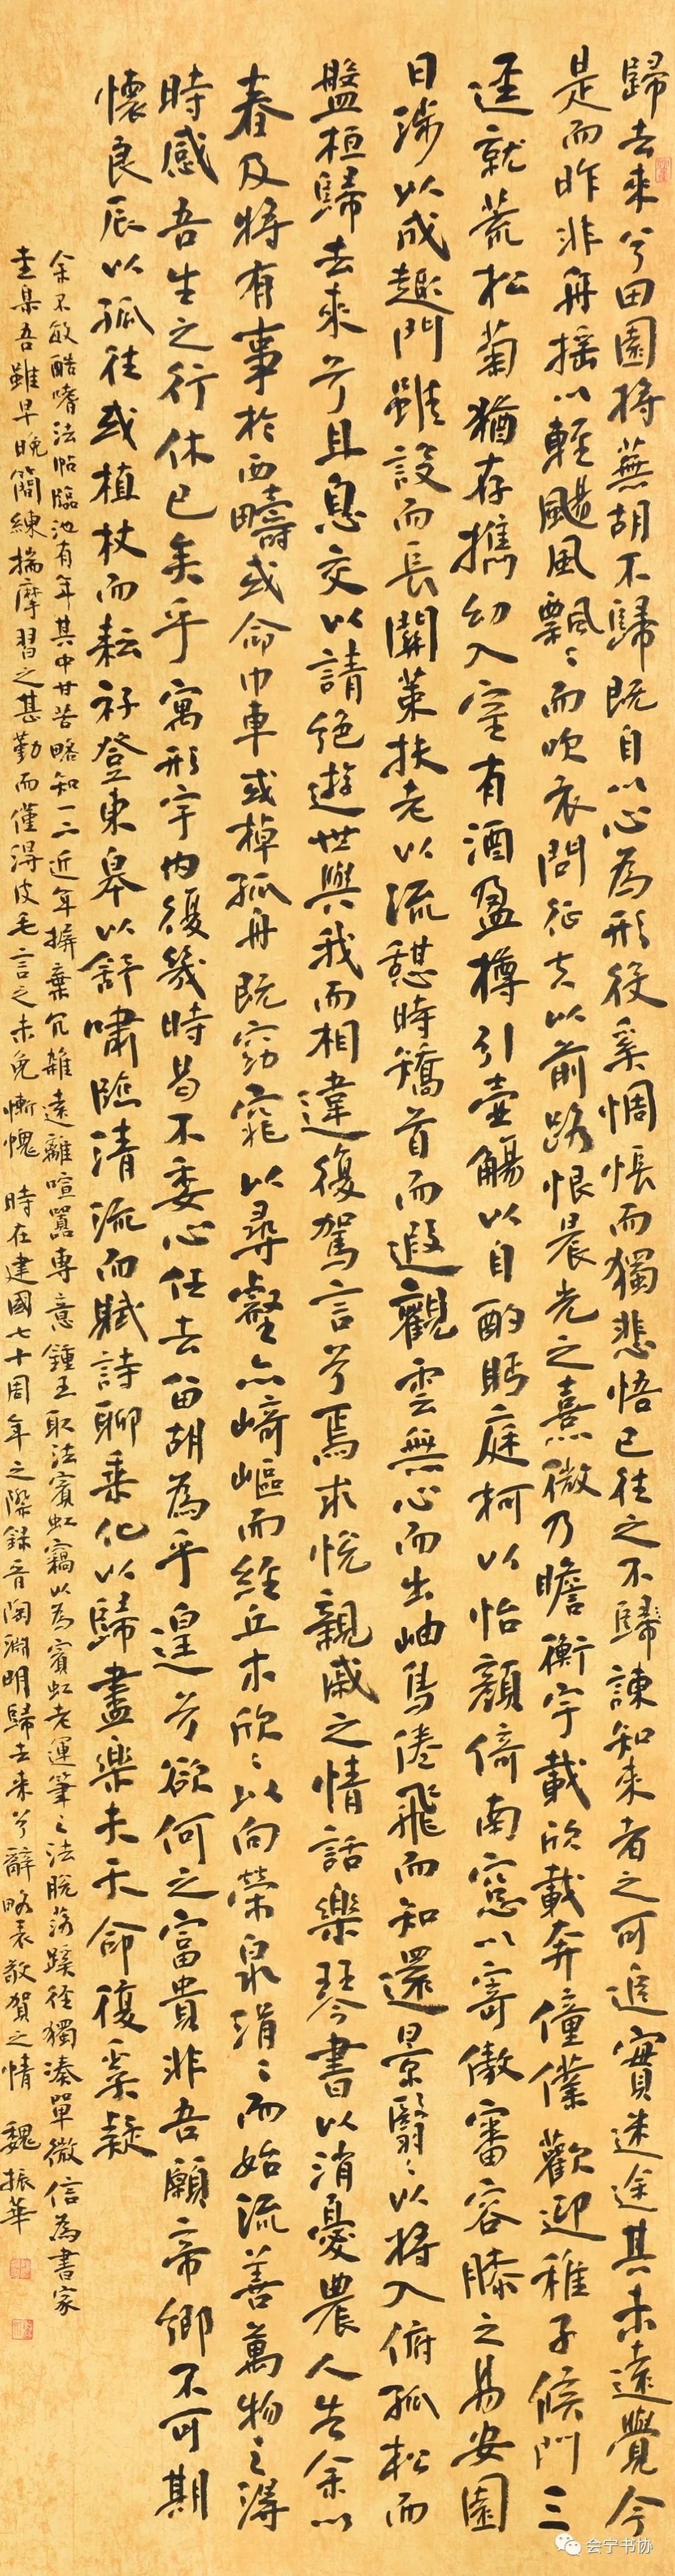 歸去來兮田園將蕪胡不歸既自以心為形役奚惆悵而獨悲悟已往之不歸諫知來者之可追實迷途其未遠覺今
是而昨非舟搖以輕颺風飄〻而吹衣問征夫以前路恨晨光之熹微乃瞻衡宇載欣載奔僮僕歡迎稚子候門三
逕就荒松菊猶存攜幼入室有酒盈樽引壺觴以自酌眄庭柯以怡顏倚南窓以寄傲審容膝之易安園
日涉以成趣門雖設而長關策扶老以流憩時矯首而遐觀雲無心而出岫鳥倦飛而知還景翳〻以將入俯孤松而
盤桓歸去來兮且息交以請絕遊世與我而相違復駕言兮焉求悅親戚之情話樂琴書以消憂農人告余以
春及將有事於西疇或命巾車或棹孤舟既窈窕以尋壑亦崎嶇而經丘木欣〻以向榮泉涓〻而始流善萬物之得
時感吾生之行休已矣乎寓形宇內復幾時曷不委心任去留胡為乎遑兮欲何之富貴非吾願帝鄉不可期
懷良辰以孤往或植杖而耘耔登東皋以舒嘯臨清流而賦詩聊乘化以歸盡樂夫天命復奚疑
余不敏酷嗜法帖臨池有年其中甘苦略知一二近年摒棄冗雜遠離喧囂專意鍾王取法賓虹竊以為賓虹老運筆之法脫落蹊徑獨湊單微信為書家
圭臬吾雖早晚簡練揣摩習之甚勤而僅得皮毛言之未免慚愧 時在建國七十周年之際錄晉陶淵明歸去來兮辭略表敬賀之情 魏振華
会宁书协